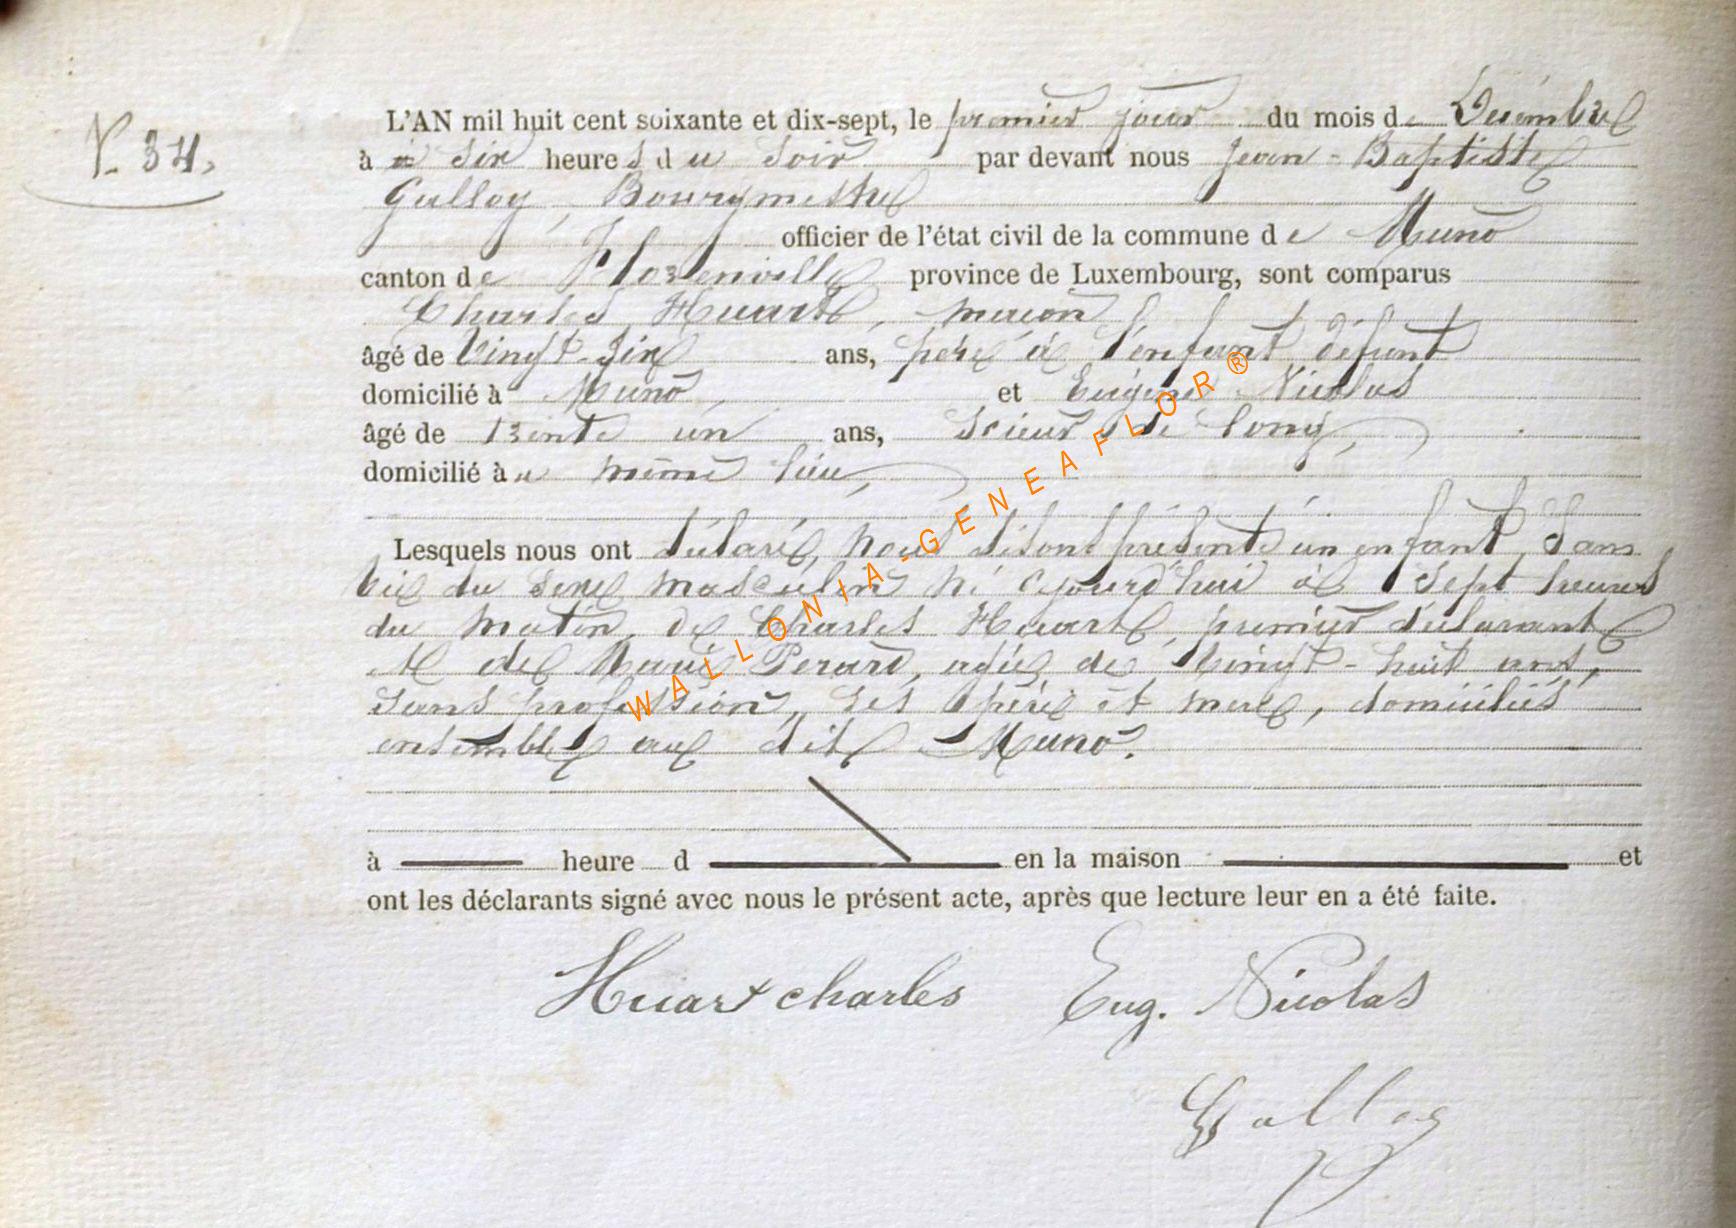 N. 34.
L'AN mil huit cent soixante et dix-sept, le premier jour du mois de Décembre
à à six heures du soir par devant nous Jean-Baptiste
Galloy, Bourgmestre
officier de l'état civil de la commune de Muno
canton de Florenville province de Luxembourg, sont comparus
Charles Huart, macon
âgé de vingt-six ans, père à l'enfant défunt
domicilié à Muno, et Eugène Nicolas
âgé de trente un ans, scieur de long,
domicilié au même lieu,
Lesquels nous ont déclaré, nous présente un enfant, sans
vie du sexe masculin né cejourd'hui à sept heures
du matin, de Charles Huart, premier déclarant
& de Marie Perard, agée de vingt-huit ans,
sans profession, ses père et mere, domiciliés
ensemble au dit Muno.
à heure d en la maison et
ont les déclarants signé avec nous le présent acte, après que lecture leur en a été faite.
Huart charles Eug. Nicolas
Galloy
WALLONIA-GENEAFLOR®